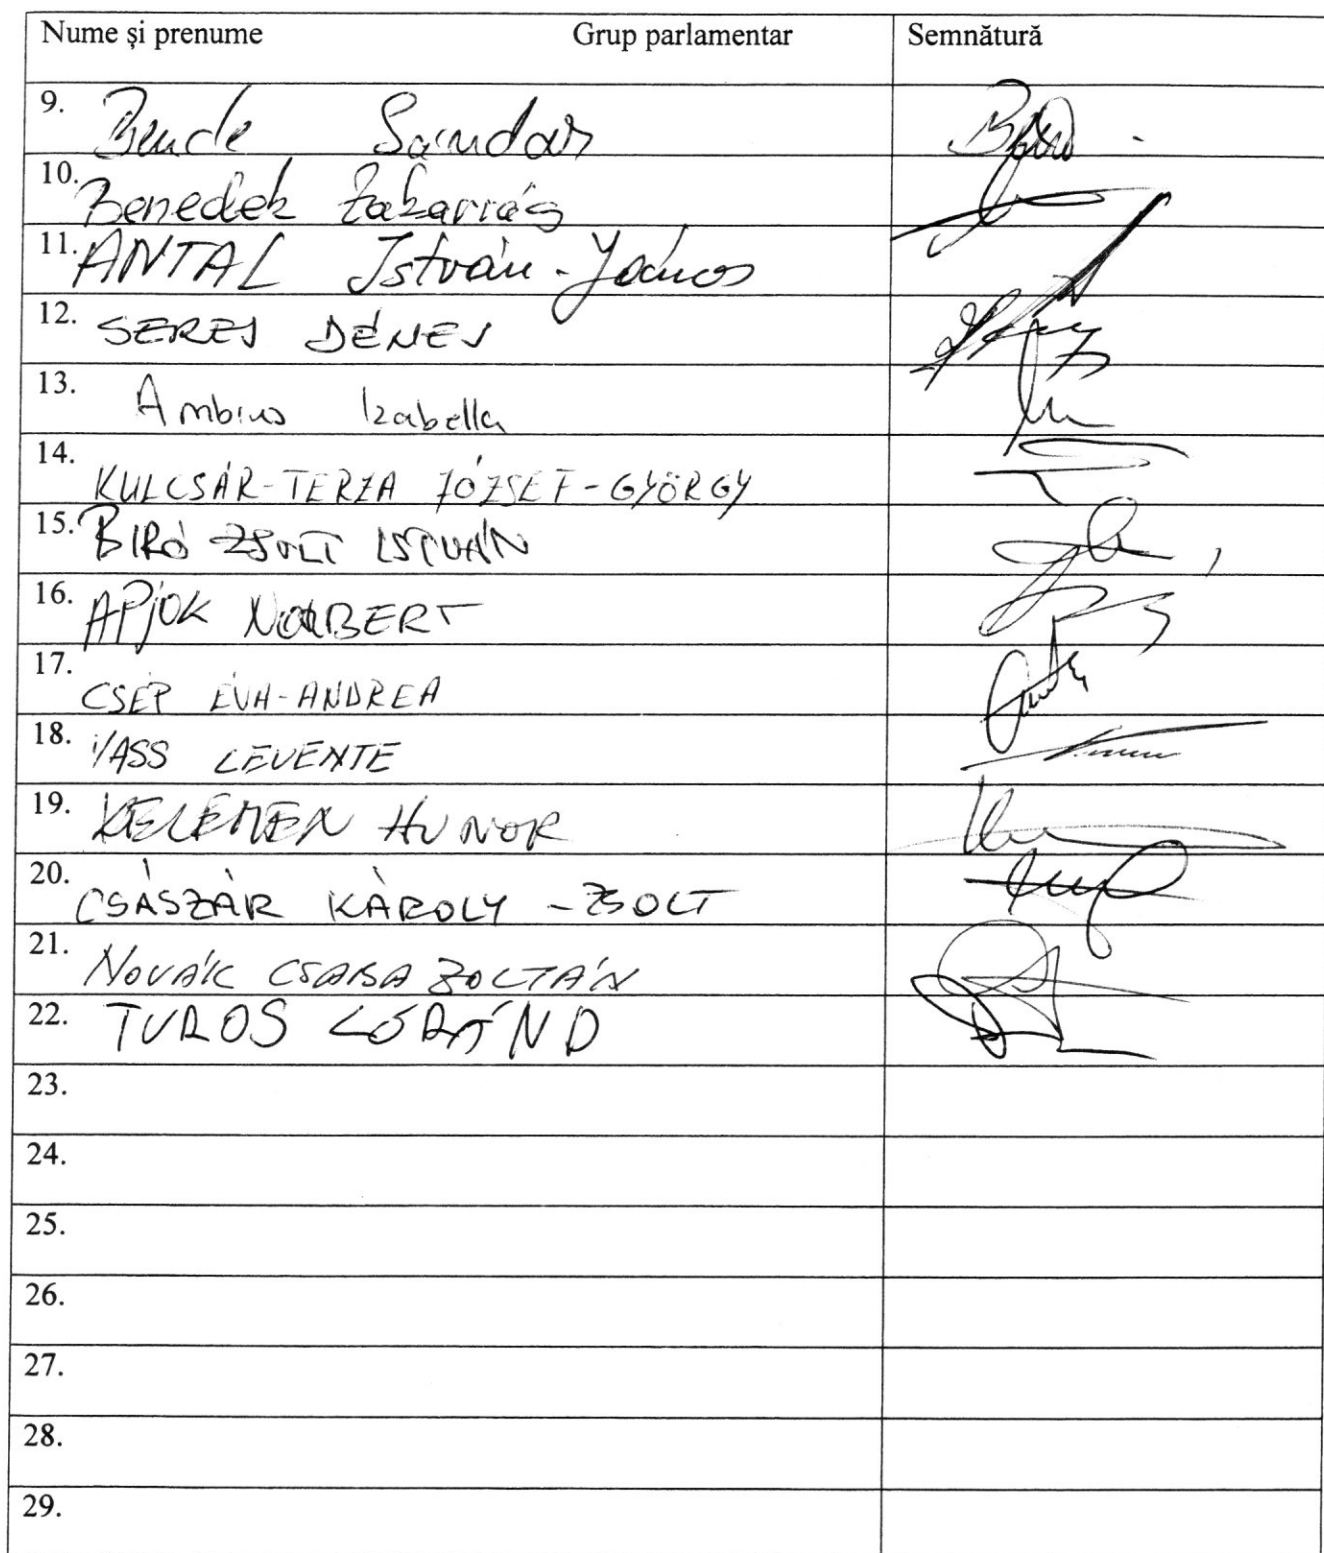 Nume și prenume Grup parlamentar Semnătură
9. Bende Sándor
10. Benedek Zakariás
11. ANTAL István-János
12. SERES DÉNES
13. Ambrus Izabella
14. KULCSÁR-TERZA JÓZSEF-GYÖRGY
15. BIRÓ ZSOLT ISTVÁN
16. APJOK NORBERT
17. CSÉP ÉVA-ANDREA
18. VASS LEVENTE
19. KELEMEN HUNOR
20. CSÁSZÁR KÁROLY-ZSOLT
21. NOVÁK CSABA ZOLTÁN
22. TUROS LÓRÁND
23.
24.
25.
26.
27.
28.
29.